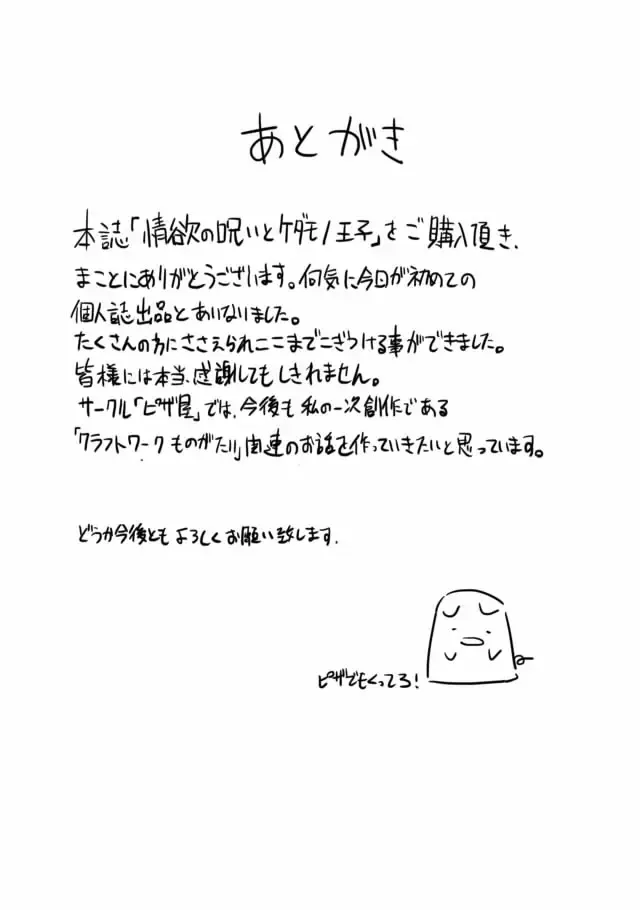 あとがき
本誌「情欲の呪いとケダモノ王子」をご購入頂き、
まことにありがとうございます。何気に今日が初めての
個人誌出品とあいなりました。
たくさんの方にささえられここまでこぎつける事ができました。
皆様には本当、感謝してもしきれません。
サークル「ピザ屋」では、今後も私の一次創作である
「クラフトワークものがたり」関連のお話を作っていきたいと思っています。
どうか今後ともよろしくお願い致します.
ピザでもくってろ!